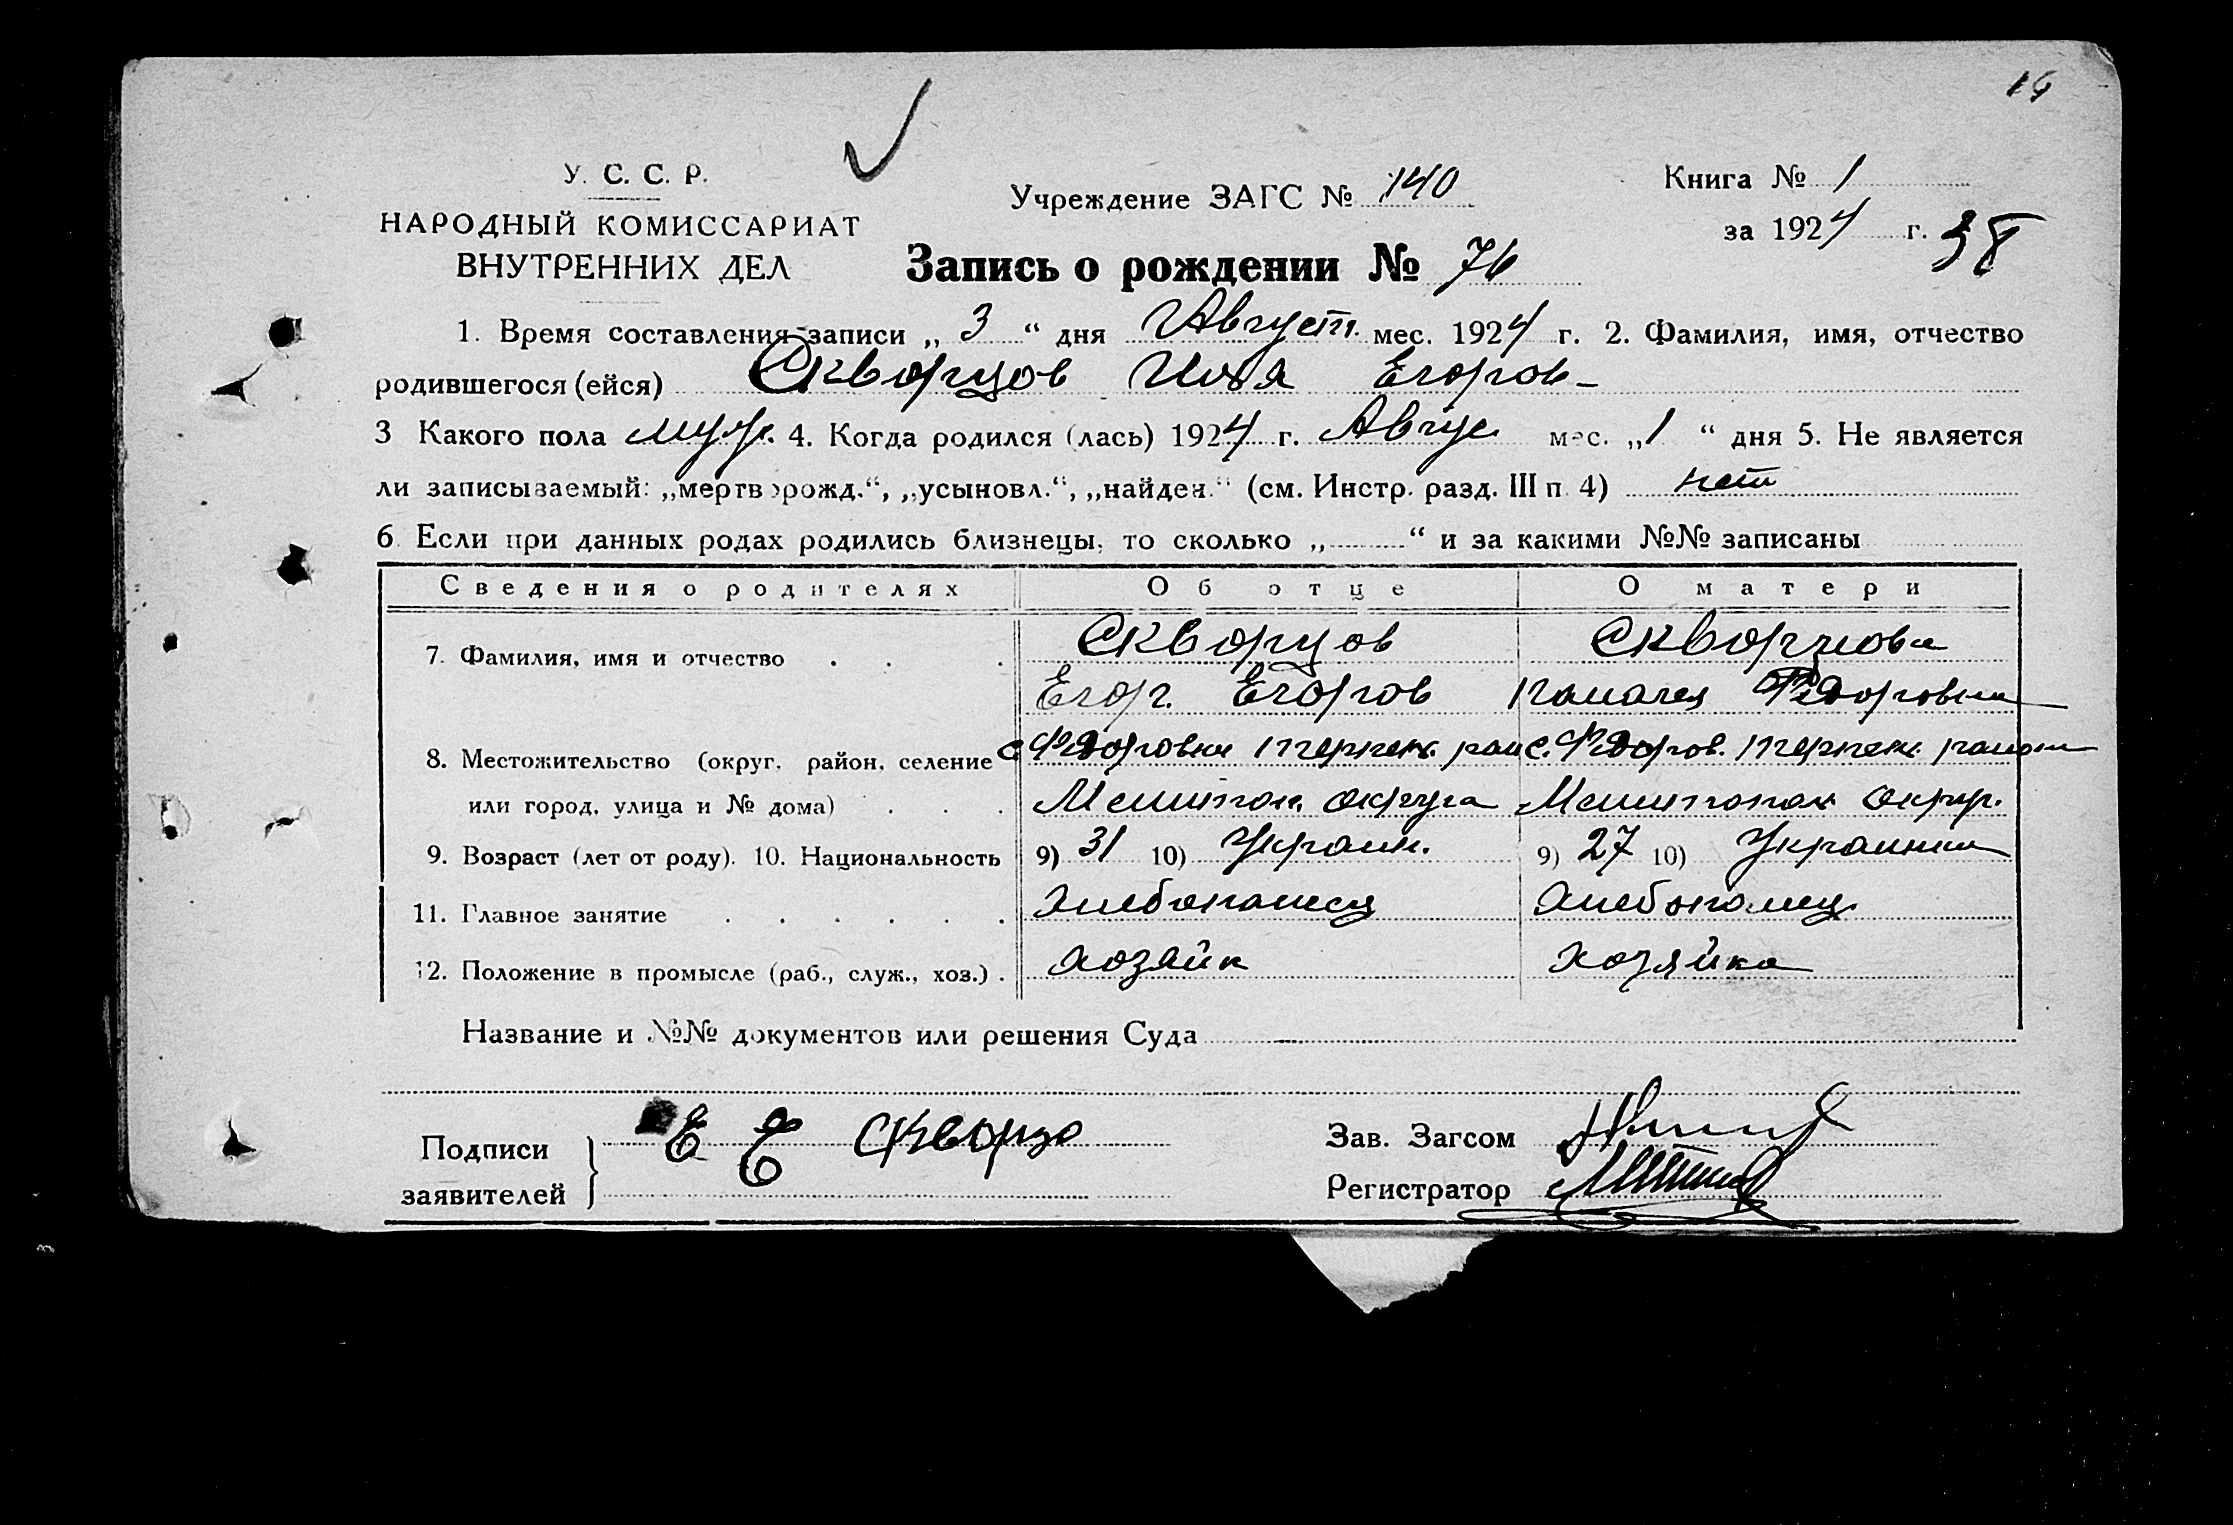 16
У. С. С. Р. Учреждение ЗАГС № 140 Книга № 1
НАРОДНЫЙ КОМИССАРИАТ за 1924 г. 38
ВНУТРЕННИХ ДЕЛ Запись о рождении № 76
1. Время составления записи „ 3 “ дня Август. мес. 1924 г. 2. Фамилия, имя, отчество
родившегося (ейся) Скворцов Илья Егоров-
3 Какого пола муж. 4. Когда родился (лась) 1924 г. Авгус. мес. „1 “ дня 5. Не является
ли записываемый: „мертворожд.“, „усыновл.“, „найден.“ (см. Инстр. разд. III п. 4) нет
6. Если при данных родах родились близнецы, то сколько „ “ и за какими №№ записаны
Сведения о родителях Об отце О матери
7. Фамилия, имя и отчество Скворцов Скворцова
Егор. Егоров Федоровна
8. Местожительство (округ, район, селение с. Федоровки рай с. Федоров. район
или город, улица и № дома) Мелитоп. округа Мелитопол округ.
9. Возраст (лет от роду). 10. Национальность 9) 31 10) Украин. 9) 27 10) Украинка
11. Главное занятие Хлебопашец Хлебопашец
12. Положение в промысле (раб., служ., хоз.) хозяин хозяйка
Название и №№ документов или решения Суда
Подписи Е Е Скворцо Зав. Загсом
заявителей Регистратор